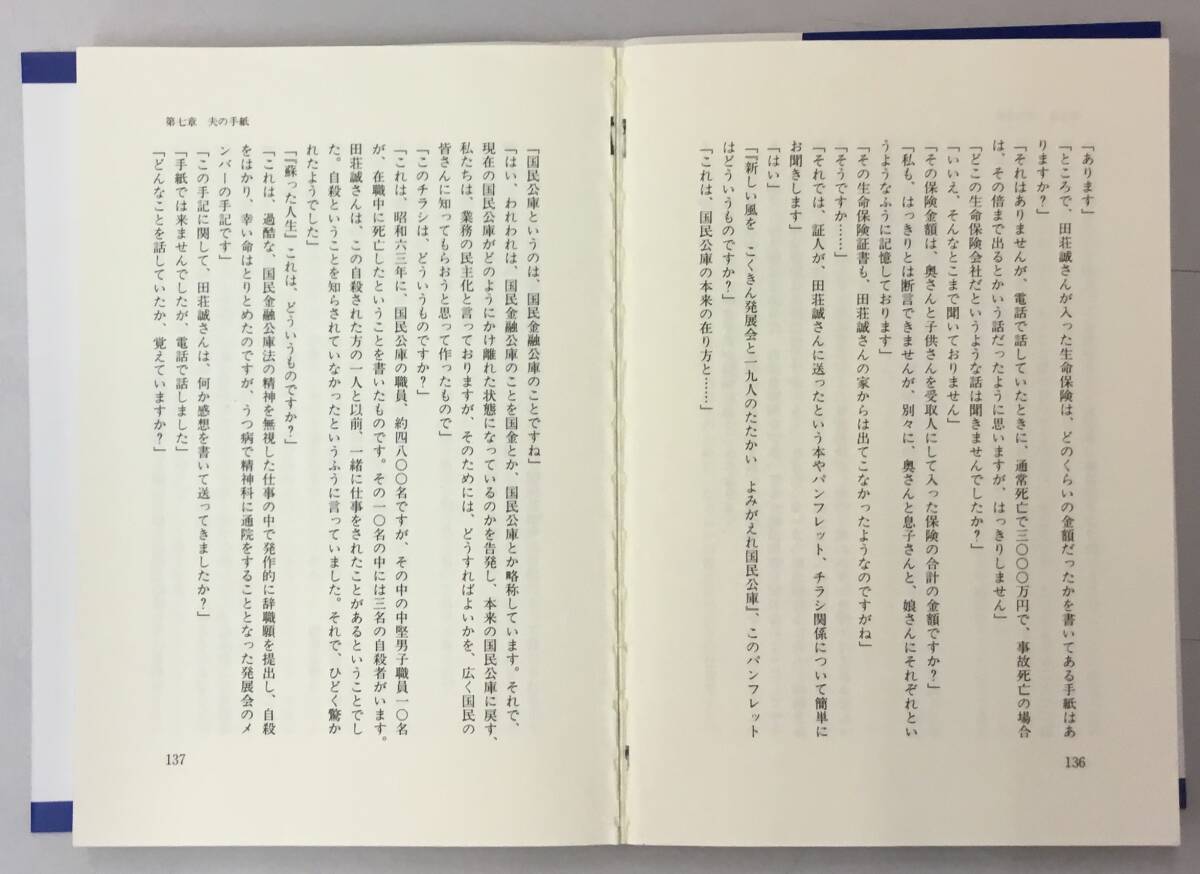 「あります」
「ところで、田荘誠さんが入った生命保険は、どのくらいの金額だったかを書いてある手紙はあ
りますか？」
「それはありませんが、電話で話していたときに、通常死亡で三〇〇〇万円で、事故死亡の場合
は、その倍まで出るとかいう話だったように思いますが、はっきりしません」
「どこの生命保険会社だというような話は聞きませんでしたか？」
「いいえ、そんなとこまで聞いておりません」
「その保険金額は、奥さんと子供さんを受取人にして入った保険の合計の金額ですか？」
「私も、はっきりとは断言できませんが、別々に、奥さんと息子さんと、娘さんにそれぞれとい
うようなふうに記憶しております」
「その生命保険証書も、田荘誠さんの家からは出てこなかったようなのですがね」
「そうですか……」
「それでは、証人が、田荘誠さんに送ったという本やパンフレット、チラシ関係について簡単に
お聞きします」
「はい」
「『新しい風を　こくきん発展会と一九人のたたかい　よみがえれ国民公庫』、このパンフレット
はどういうものですか？」
「これは、国民公庫の本来の在り方と……」
136
第七章　夫の手紙
「国民公庫というのは、国民金融公庫のことですね」
「はい、われわれは、国民金融公庫のことを国金とか、国民公庫とか略称しています。それで、
現在の国民公庫がどのようにかけ離れた状態になっているのかを告発し、本来の国民公庫に戻す、
私たちは、業務の民主化と言っておりますが、そのためには、どうすればよいかを、広く国民の
皆さんに知ってもらおうと思って作ったもので」
「このチラシは、どういうものですか？」
「これは、昭和六三年に、国民公庫の職員、約四八〇〇名ですが、その中の中堅男子職員一〇名
が、在職中に死亡したということを書いたものです。その一〇名の中には三名の自殺者がいます。
田荘誠さんは、この自殺された方の一人と以前、一緒に仕事をされたことがあるということでし
た。自殺ということを知らされていなかったというふうに言っていました。それで、ひどく驚か
れたようでした」
「『蘇った人生』これは、どういうものですか？」
「これは、過酷な、国民金融公庫法の精神を無視した仕事の中で発作的に辞職願を提出し、自殺
をはかり、幸い命はとりとめたのですが、うつ病で精神科に通院をすることとなった発展会のメ
ンバーの手記です」
「この手記に関して、田荘誠さんは、何か感想を書いて送ってきましたか？」
「手紙では来ませんでしたが、電話で話しました」
「どんなことを話していたか、覚えていますか？」
137